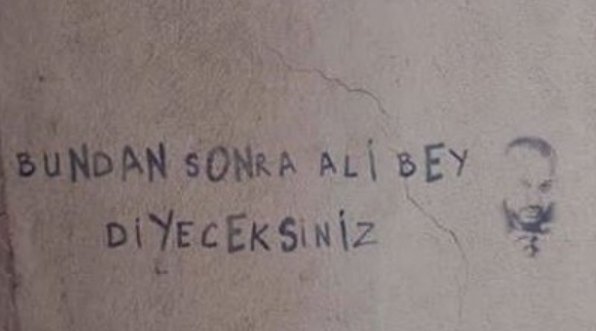 BUNDAN SONRA ALİ BEY
DİYECEKSİNİZ